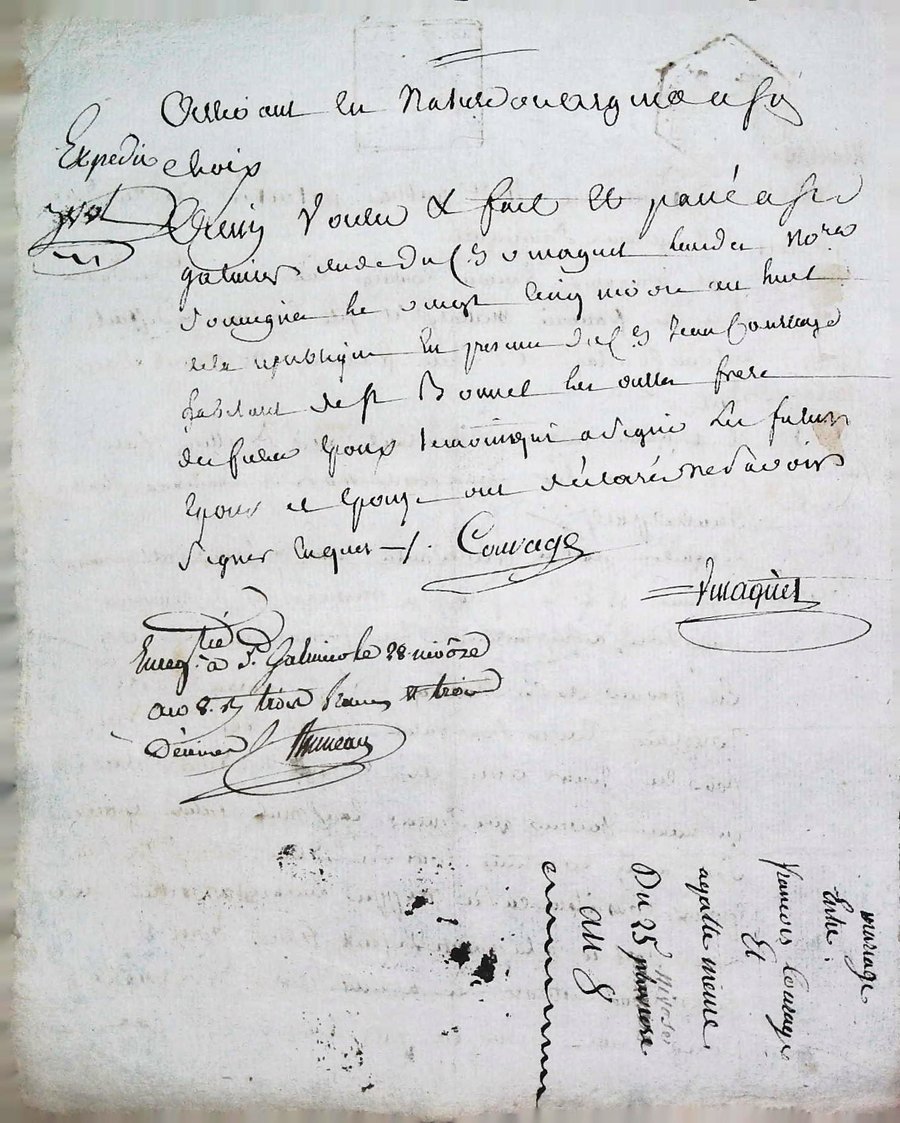 en Nature ou argent a Son
choix
Expedié
Ainsi voulu & fait et passé a St
galmier etude du Cn Vmaguet Landit Nore
Soussigné le vingt cinq nivose an huit
de la republique en presence du Cn Jean Courage
habitant de St Bonnet les oulles frere
du futur Epoux temoin qui a Signé Les futurs
Epoux et Epouze ont déclaré ne Savoir
Signer Enquis -/. Courage
Vmaguet
Enregtré à St Galmier le 28 nivôse
an 8. R. trois francs & trois
Décimes Bruneau
mariage
Entre
francois Courage
Et
agathe meune
Du 25 pluviose nivose
an 8